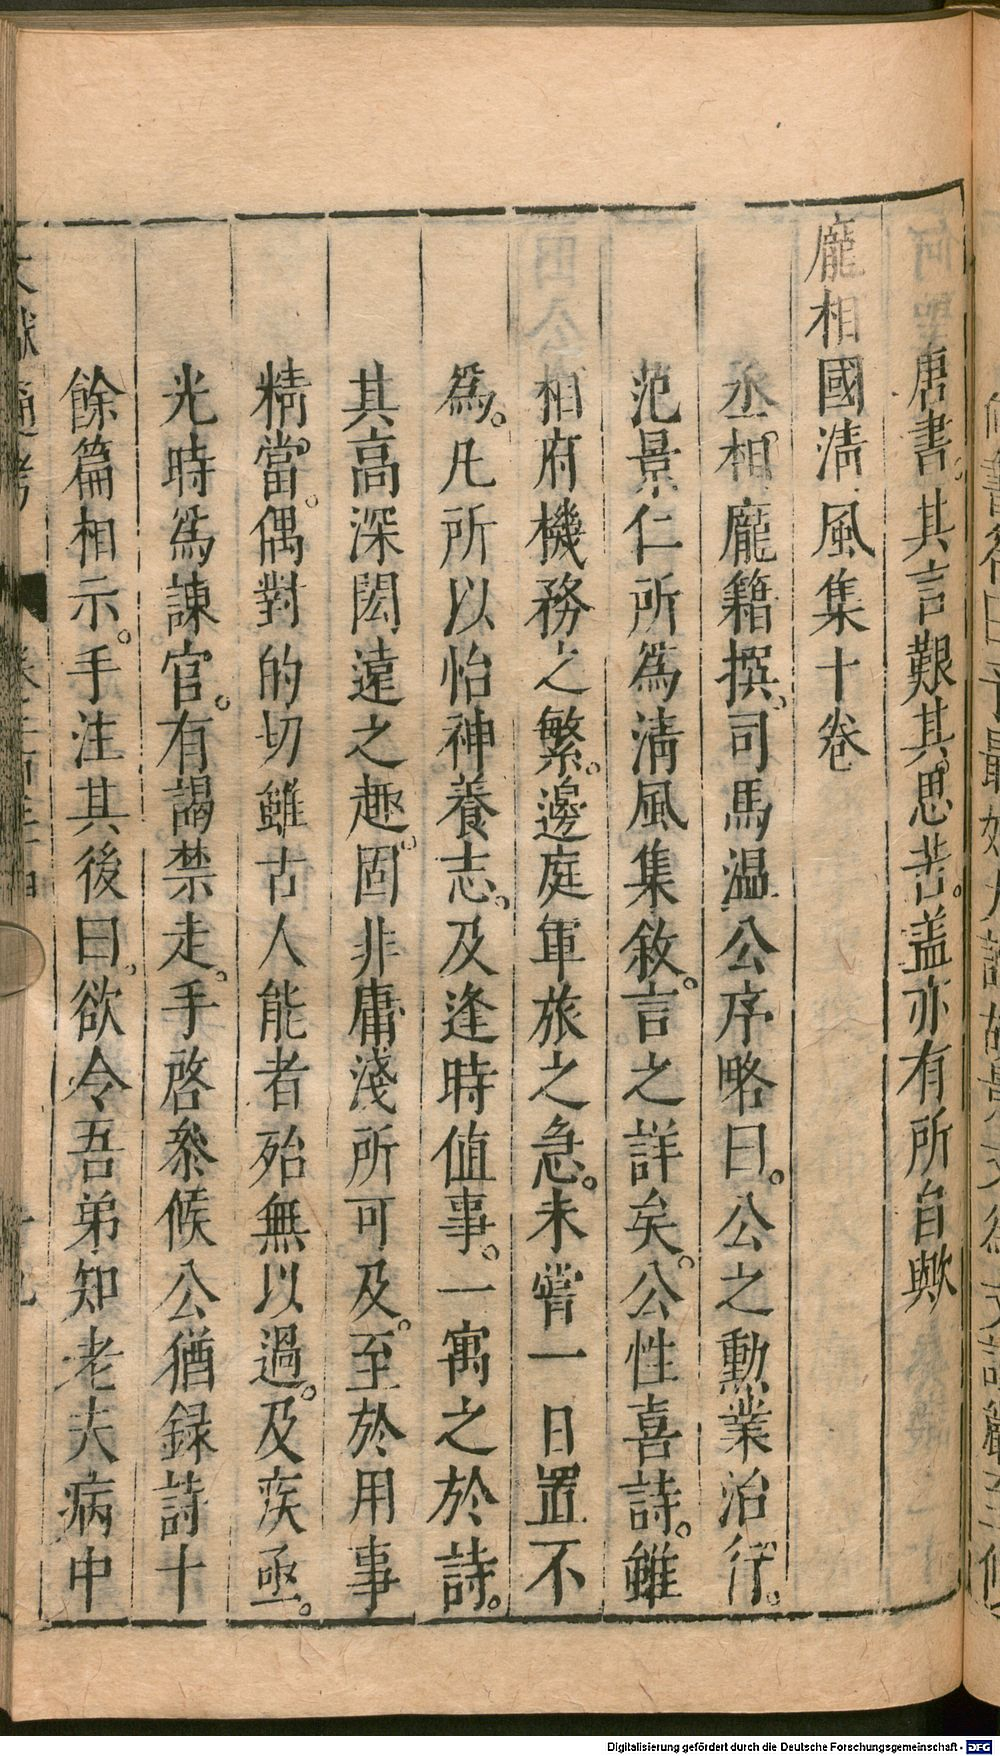 唐書。其言艱其思苦。盖亦有所自歟
龐相國清風集十卷
丞相龐籍撰。司馬温公序略曰。公之勳業治行。
范景仁所爲清風集敘。言之詳矣。公性喜詩。雖
相府機務之繁。邊庭軍旅之急。未嘗一日置不
爲。凡所以怡神養志。及逢時值事。一寓之於詩。
其高深閎遠之趣。固非庸淺所可及。至於用事
精當。偶對的切雖古人能者殆無以過。及疾亟。
光時爲諫官。有謁禁走。手啓叅候公猶録詩十
餘篇相示。手注其後曰。欲令吾弟知老夫病中
Digitalisierung gefördert durch die Deutsche Forschungsgemeinschaft - DFG